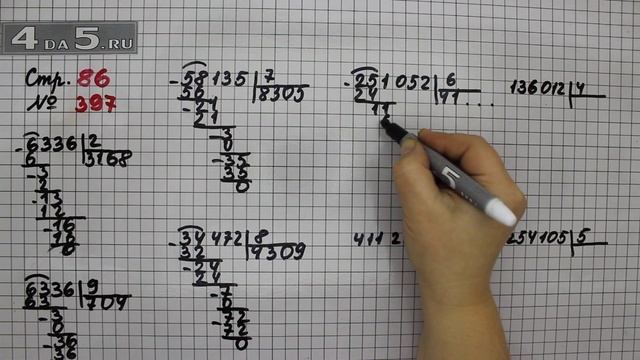 4 DA 5.RU
Стр. 86
№ 397
-6336 2
6 3168
-3
2
-13
12
-16
16
0
6336 9
63 704
-3
0
-36
36
-58135 7
56 8305
-21
21
-3
0
-35
35
0
-34472 8
32 4309
-24
24
-7
0
-72
72
0
-251052 6
24 41...
11
136012 4
4112
254105 5
5